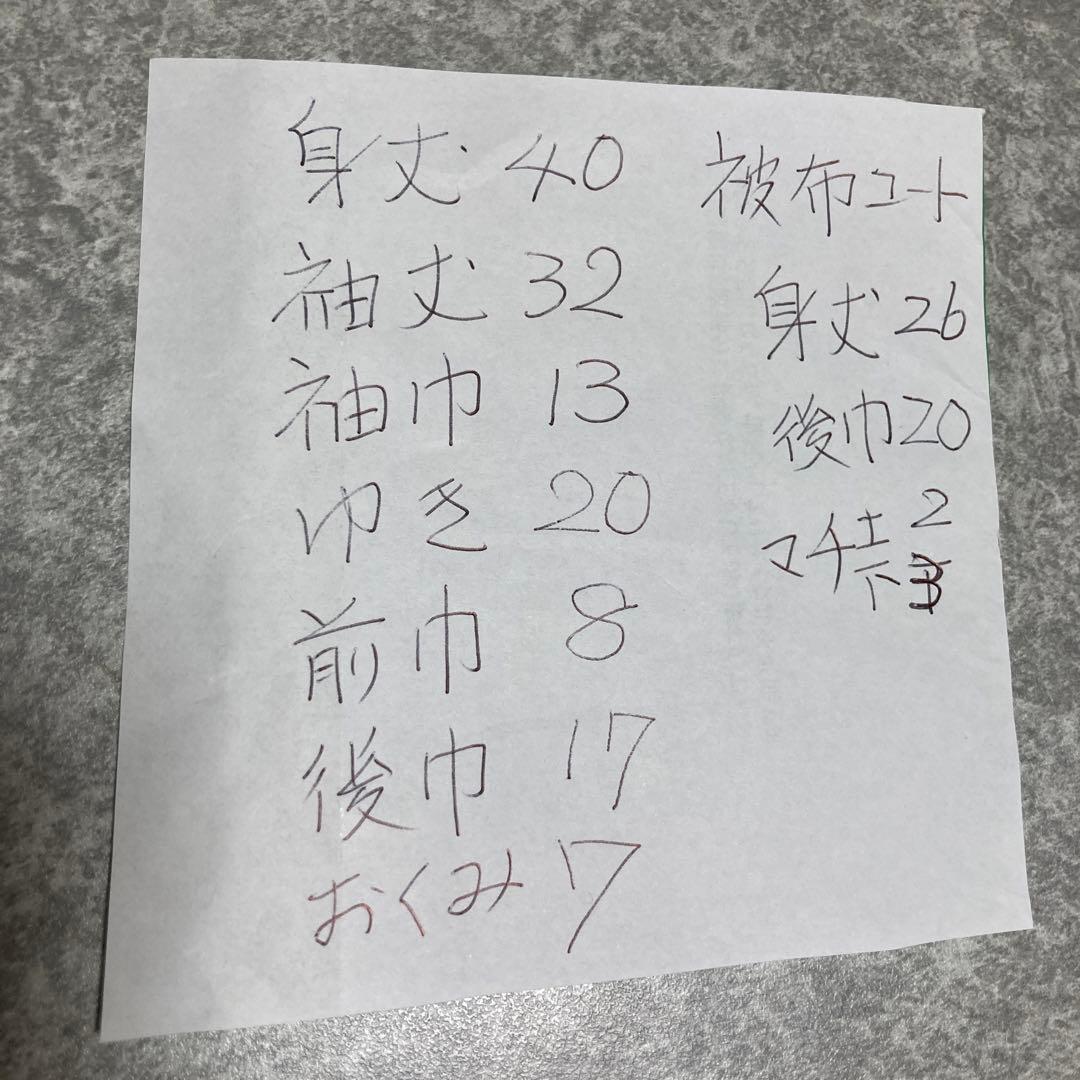 身丈 40
袖丈 32
袖巾 13
ゆき 20
前巾 8
後巾 17
おくみ 7
被布コート
身丈 26
後巾 20
マチ 上 2
下 3